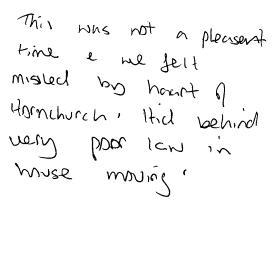 This was not a pleasent
time & we felt
misled by haart of
Hornchurch, Hid behind
very poor law in
house moving.